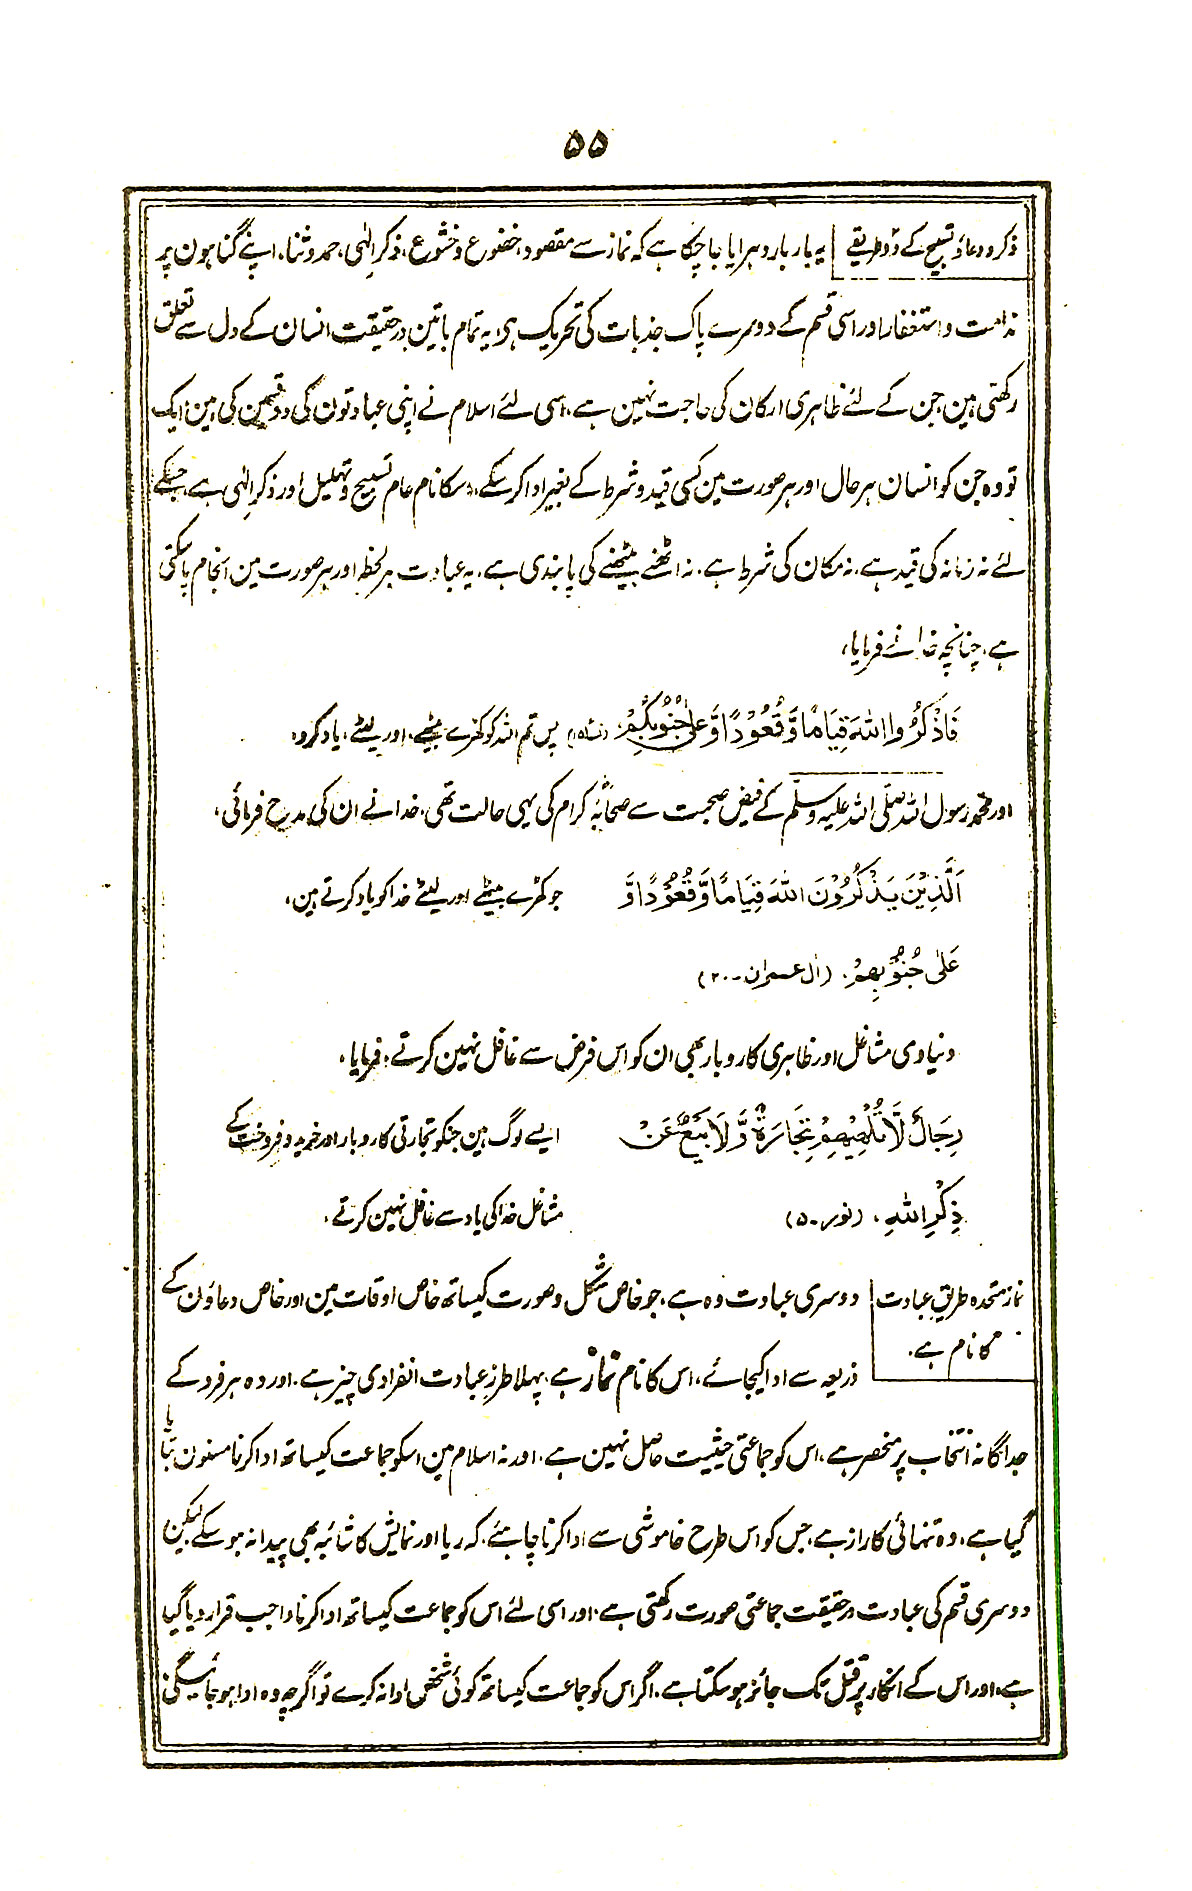 ۵۵
ذکر و دعا و تسبیح کے دو طریقے یہ بار بار دہرایا جا چکا ہے کہ نماز سے مقصود، خضوع و خشوع، ذکرِ الٰہی، حمد و ثنا، اپنے گناہون پر
ندامت و استغفار اور اسی قسم کے دوسرے پاک جذبات کی تحریک ہو، یہ تمام باتین درحقیقت انسان کے دل سے تعلق
رکھتی ہین جن کے لئے ظاہری ارکان کی حاجت نہین ہے، اسی لئے اسلام نے اپنی عبادتون کی دو قسمین کی ہین، ایک
تو وہ جن کو انسان ہر حال اور ہر صورت مین کسی قید و شرط کے بغیر ادا کر سکے، اسکا نام عام تسبیح و تہلیل اور ذکرِ الٰہی ہے، جسکے
لئے نہ زمانہ کی قید ہے، نہ مکان کی شرط ہے، نہ اٹھنے بیٹھنے کی پابندی ہے، یہ عبادت ہر لحظہ اور ہر صورت مین انجام پاسکتی
ہے، چنانچہ خدا نے فرمایا،
فَاذْكُرُوا اللّٰهَ قِيَامًا وَّ قُعُوْدًا وَّ عَلٰى جُنُوْبِكُمْ (نساء) پس تم اللہ کو کھڑے بیٹھے، اور لیٹے، یاد کرو،
اور محمد رسول اللہ صلی اللہ علیہ وسلم کے فیض صحبت سے صحابۂ کرام کی یہی حالت تھی، خدا نے ان کی مدح فرمائی،
اَلَّذِيْنَ يَذْكُرُوْنَ اللّٰهَ قِيَامًا وَّ قُعُوْدًا وَّ جو کھڑے بیٹھے اور لیٹے خدا کو یاد کرتے ہین،
عَلٰى جُنُوْبِهِمْ، (اٰل عمران ۔ ۲۰)
دنیاوی مشاغل اور ظاہری کاروبار بھی ان کو اس فرض سے غافل نہین کرتے، فرمایا،
رِجَالٌ لَّا تُلْهِيْهِمْ تِجَارَةٌ وَّ لَا بَيْعٌ عَنْ ایسے لوگ ہین جنکو تجارتی کاروبار اور خرید و فروخت کے
ذِكْرِ اللّٰهِ، (نور ۔ ۵) مشاغل خدا کی یاد سے غافل نہین کرتے،
نماز متحدہ طریقِ عبادت دوسری عبادت وہ ہے، جو خاص شکل و صورت کیساتھ خاص اوقات مین اور خاص دعاؤن کے
کا نام ہے، ذریعہ سے ادا کیجائے، اس کا نام نماز ہے، پہلا طرزِ عبادت انفرادی چیز ہے، اور وہ ہر فرد کے
جداگانہ انتخاب پر منحصر ہے، اس کو جماعتی حیثیت حاصل نہین ہے، اور نہ اسلام مین اسکو جماعت کیساتھ ادا کرنا مسنون بتایا
گیا ہے، وہ تنہائی کا راز ہے، جس کو اس طرح خاموشی سے ادا کرنا چاہئے، کہ ریا اور نمایش کا شائبہ بھی پیدا نہ ہو سکے لیکن
دوسری قسم کی عبادت درحقیقت جماعتی صورت رکھتی ہے، اور اسی لئے اس کو جماعت کیساتھ ادا کرنا واجب قرار دیا گیا
ہے، اور اس کے انکار پر قتل تک جائز ہو سکتا ہے، اگر اس کو جماعت کیساتھ کوئی شخص ادا نہ کرے تو اگرچہ وہ ادا ہو جائیگی